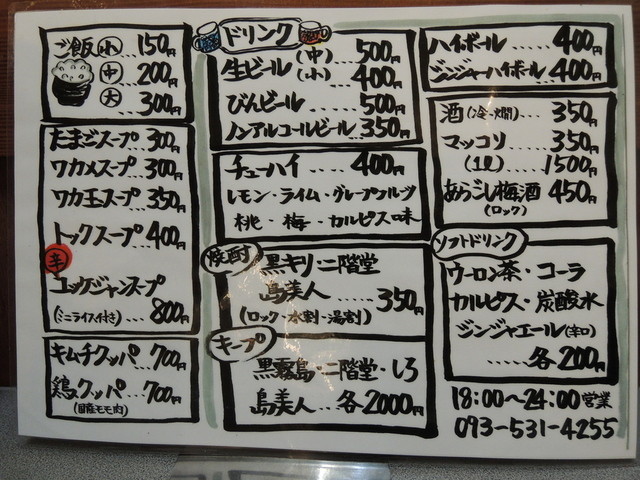 ご飯 小 150円
中 200円
大 300円
たまごスープ 300円
ワカメスープ 300円
ワカ玉スープ 350円
トックスープ 400円
辛
ユッケジャンスープ
(ミニライス付き) 800円
キムチクッパ 700円
鶏クッパ 700円
(国産モモ肉)
ドリンク
生ビール (中) 500円
(小) 400円
びんビール 500円
ノンアルコールビール 350円
チューハイ 400円
レモン・ライム・グレープフルーツ
桃・梅・カルピス味
焼酎
黒キリ・二階堂
島美人 350円
(ロック・水割・湯割)
キープ
黒霧島・二階堂・しろ
島美人 各2000円
ハイボール 400円
ジンジャーハイボール 400円
酒 (冷・燗) 350円
マッコリ 350円
(1L) 1500円
あらごし梅酒 450円
(ロック)
ソフトドリンク
ウーロン茶・コーラ
カルピス・炭酸水
ジンジャエール(辛口)
各200円
18:00~24:00営業
093-531-4255